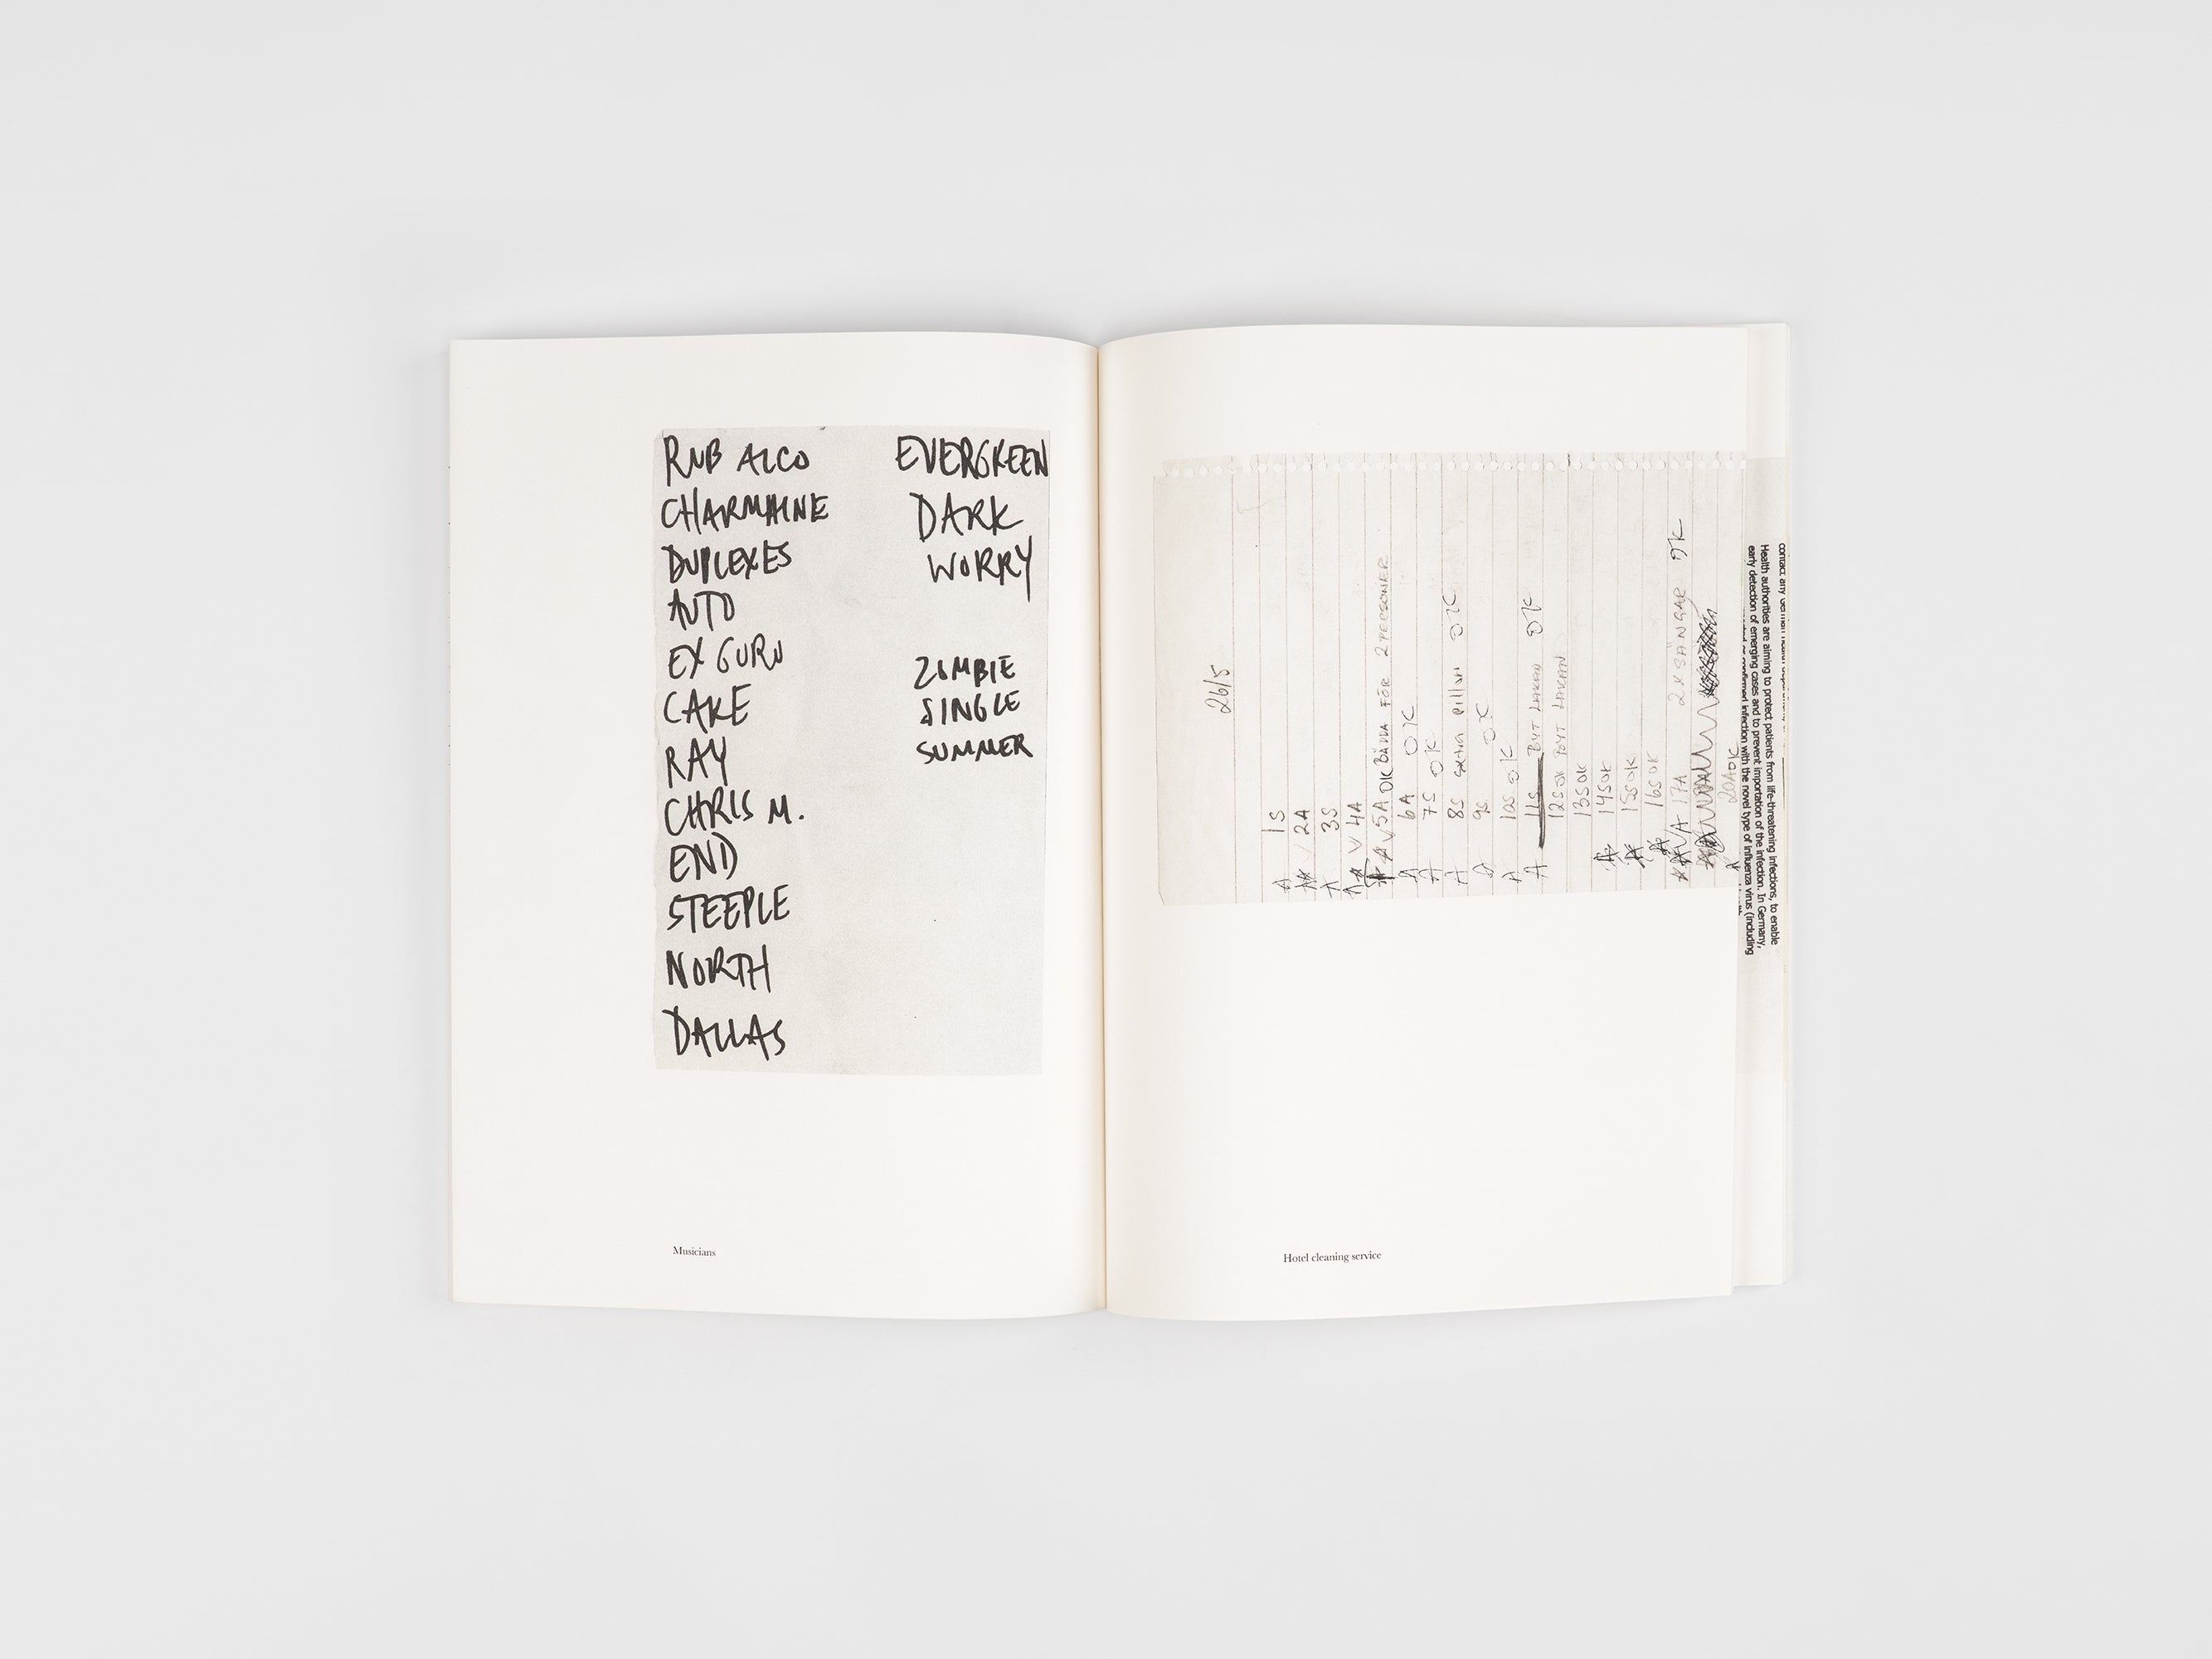 RUB ALCO
CHARMAINE
DUPLEXES
AUTO
EX GURU
CAKE
RAY
CHRIS M.
END
STEEPLE
NORTH
DALLAS
EVERGREEN
DARK
WORRY
ZOMBIE
SINGLE
SUMMER
Musicians
26/5
A 1S
2A
A 3S
V 4A
A V 5A OK BÄDDA FÖR 2 PERSONER
A 6A OK
A 7S OK
A 8S extra pillow OK
A 9S OK
A 10S OK
A 11S BYT LAKAN OK
12S OK BYT LAKAN
13S OK
A 14S OK
A 15S OK
A 16S OK
V A 17A 2 X SÄNGAR OK
20A OK
Hotel cleaning service
contact any German health
Health authorities are aiming to protect patients from life-threatening infections, to enable
early detection of emerging cases and to prevent importation of the infection. In Germany,
or confirmed infection with the novel type of influenza virus (including